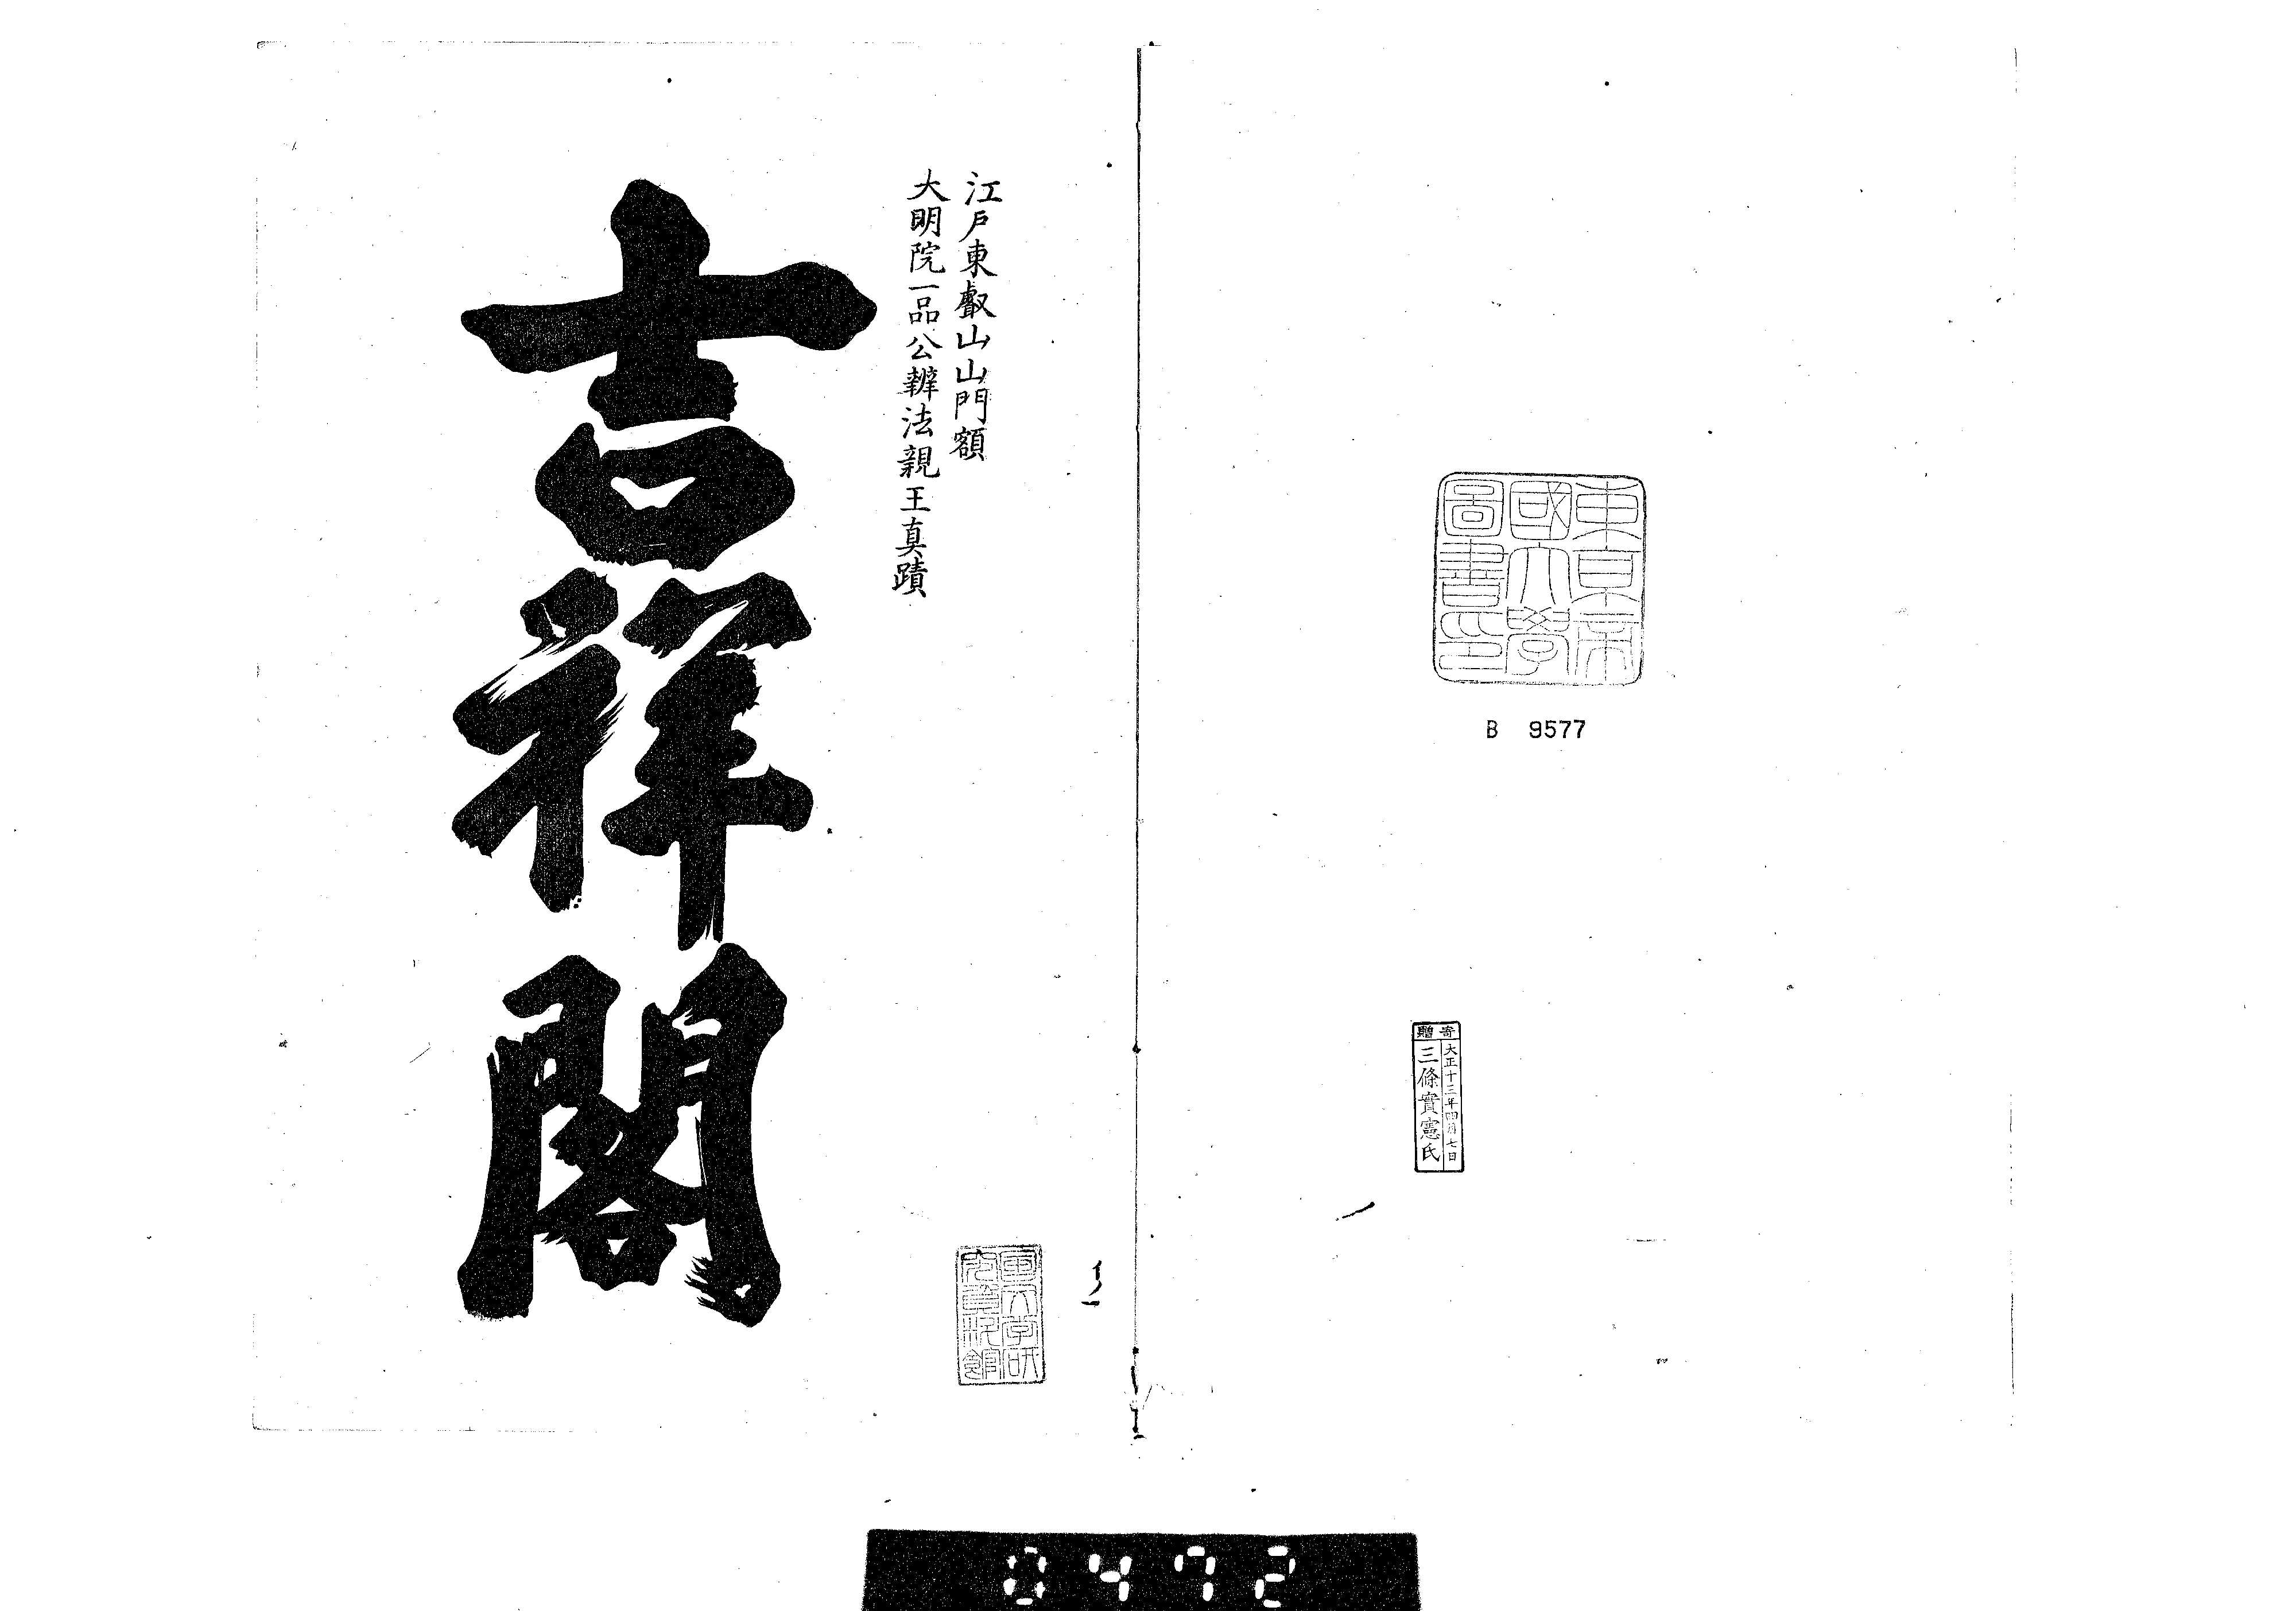 東京帝
國大學
圖書印
B 9577
寄贈
大正十三年四月七日
三條實憲氏
江戶東叡山山門額
大明院一品公辨法親王真蹟
吉祥閣
0472